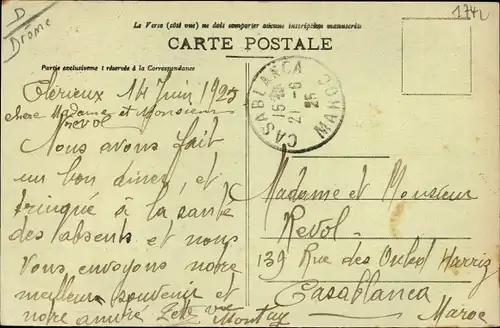 D
Drôme
1742
Le Verso (côté vue) ne doit comporter aucune inscription manuscrite
CARTE POSTALE
Partie exclusivement réservée à la Correspondance
Clérieux 14 Juin 1925
chere Madame et Monsieur
Revol
Nous avons fait
un bon diner, et
trinqué à la santé
des absents et nous
Vous envoyons notre
meilleur souvenir et
notre amitié
Montay
CASABLANCA
15
21 - 6
25
MAROC
Madame et Monsieur
Revol
139 Rue des Ouled Harriz
Casablanca
Maroc